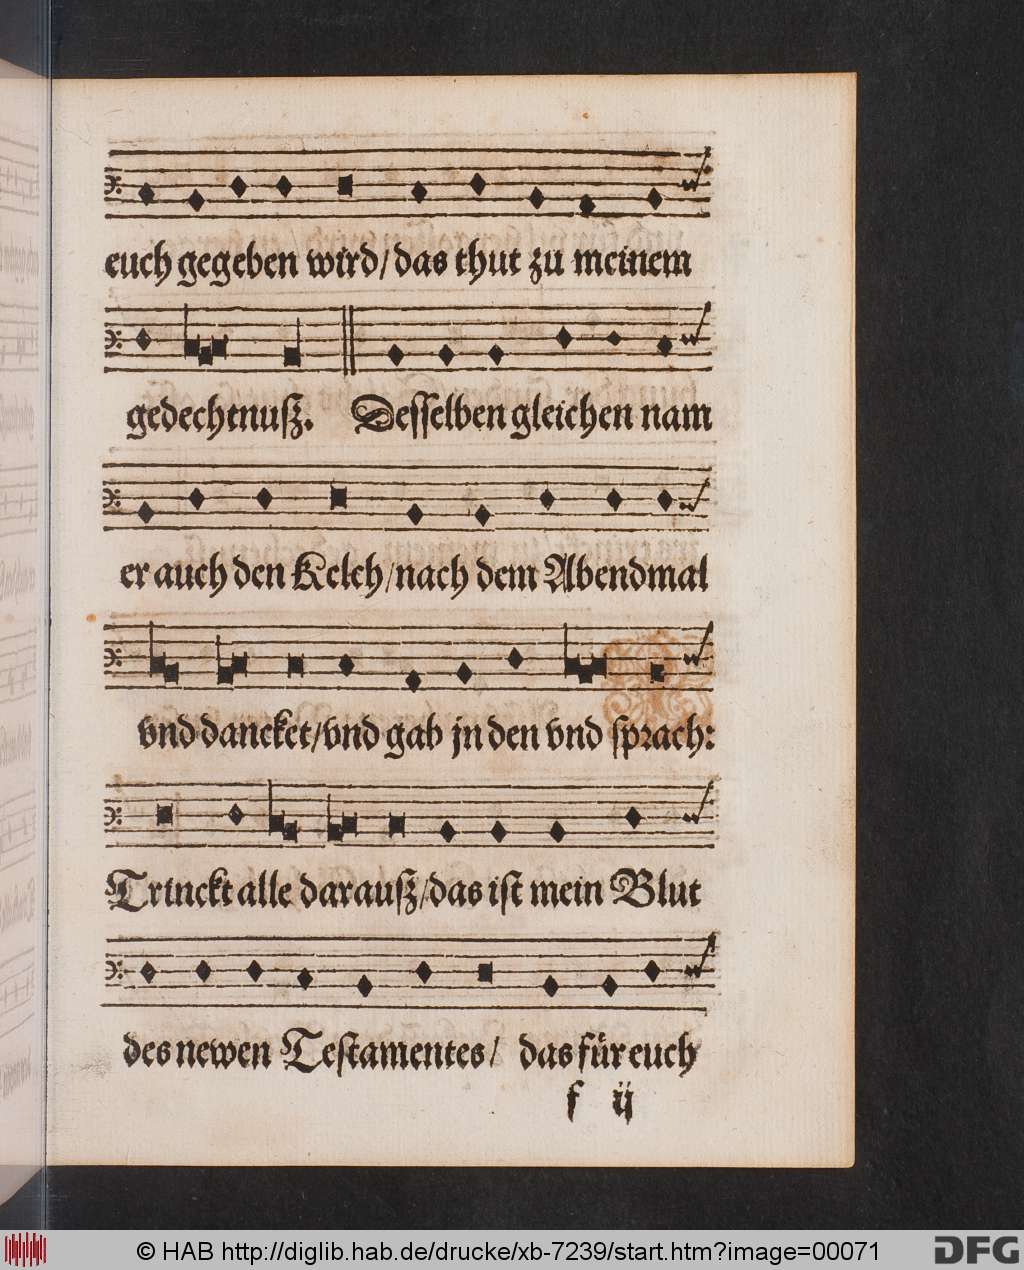 euch gegeben wird/das thut zu meinem
gedechtnuſz. Deſſelben gleichen nam
er auch den Kelch/nach dem Abendmal
vnd dancket/vnd gab jn den vnd ſprach:
Trinckt alle darauſz/das iſt mein Blut
des newen Teſtamentes/ das für euch
f ij
© HAB http://diglib.hab.de/drucke/xb-7239/start.htm?image=00071
DFG